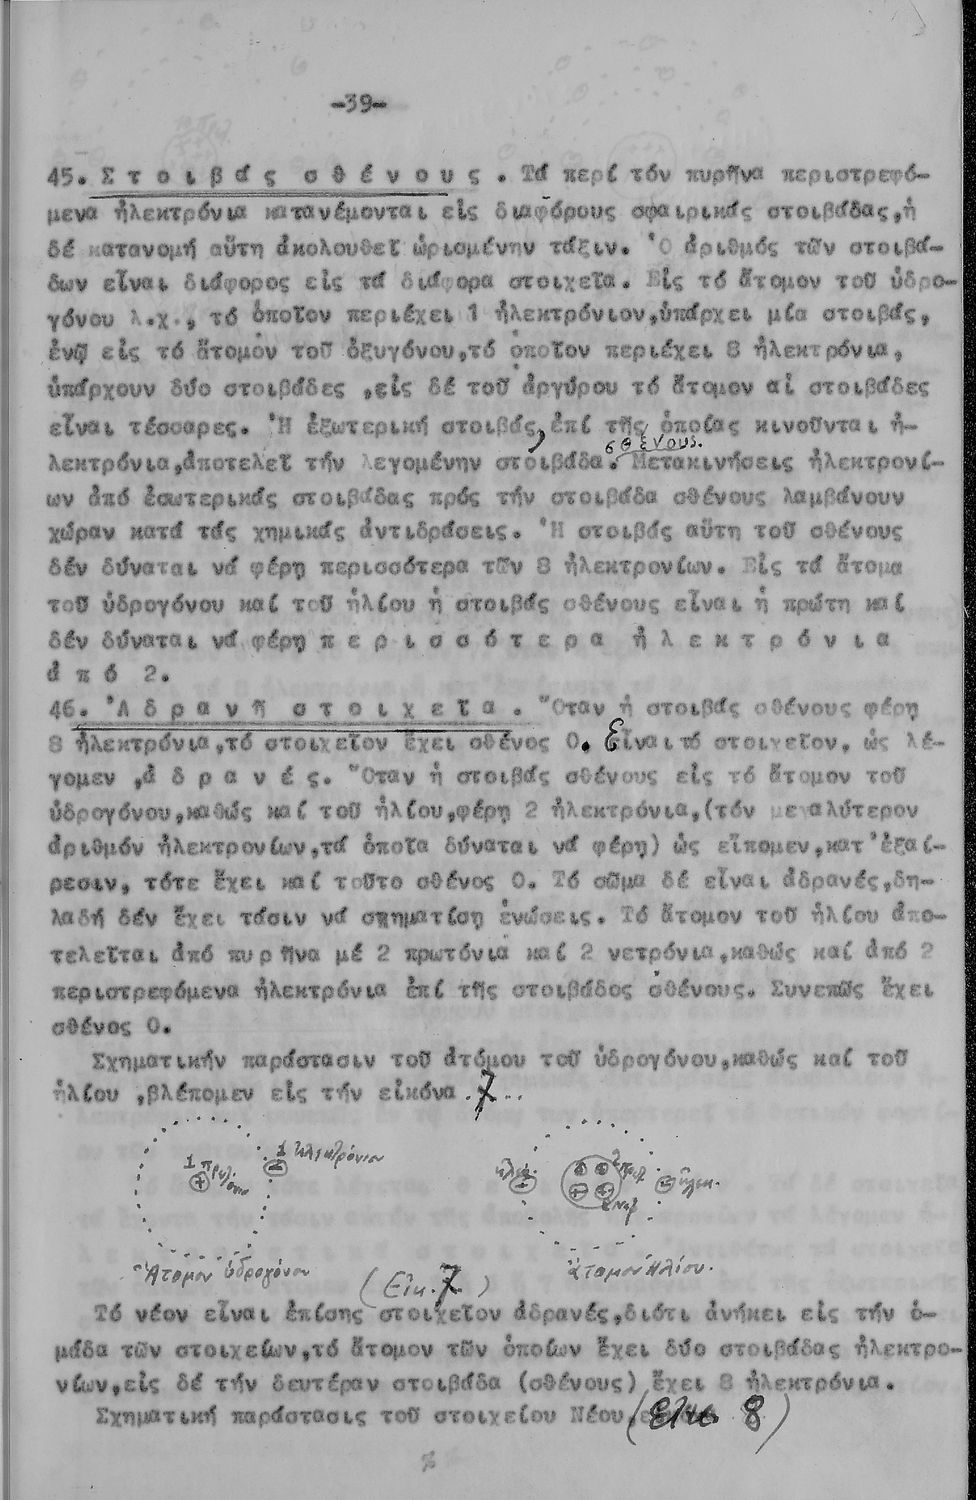 -39-
45. Στοιβάς σθένους. Τά περί τόν πυρῆνα περιστρεφό-
μενα ἠλεκτρόνια κατανέμονται εἰς διαφόρους σφαιρικάς στοιβάδας, ἡ
δέ κατανομή αὕτη ἀκολουθεῖ ὡρισμένην τάξιν. Ὁ ἀριθμός τῶν στοιβά-
δων εἶναι διάφορος εἰς τά διάφορα στοιχεῖα. Εἰς τό ἄτομον τοῦ ὑδρο-
γόνου λ.χ., τό ὁποῖον περιέχει 1 ἠλεκτρόνιον, ὑπάρχει μία στοιβάς,
ἐνῷ εἰς τό ἄτομον τοῦ ὀξυγόνου, τό ὁποῖον περιέχει 8 ἠλεκτρόνια,
ὑπάρχουν δύο στοιβάδες, εἰς δέ τοῦ ἀργύρου τό ἄτομον αἱ στοιβάδες
εἶναι τέσσαρες. Ἡ ἐξωτερική στοιβάς, ἐπί τῆς ὁποίας κινοῦνται ἠ-
σθένους.
λεκτρόνια, ἀποτελεῖ τήν λεγομένην στοιβάδα. Μετακινήσεις ἠλεκτρονί-
ων ἀπό ἐσωτερικάς στοιβάδας πρός τήν στοιβάδα σθένους λαμβάνουν
χώραν κατά τάς χημικάς ἀντιδράσεις. Ἡ στοιβάς αὕτη τοῦ σθένους
δέν δύναται νά φέρῃ περισσότερα τῶν 8 ἠλεκτρονίων. Εἰς τά ἄτομα
τοῦ ὑδρογόνου καί τοῦ ἡλίου ἡ στοιβάς σθένους εἶναι ἡ πρώτη καί
δέν δύναται νά φέρῃ περισσότερα ἠλεκτρόνια
ἀπό 2.
46. Ἀδρανῆ στοιχεῖα. Ὅταν ἡ στοιβάς σθένους φέρῃ
8 ἠλεκτρόνια, τό στοιχεῖον ἔχει σθένος 0. Εἶναι τό στοιχεῖον, ὡς λέ-
γομεν, ἀδρανές. Ὅταν ἡ στοιβάς σθένους εἰς τό ἄτομον τοῦ
ὑδρογόνου, καθώς καί τοῦ ἡλίου, φέρῃ 2 ἠλεκτρόνια, (τόν μεγαλύτερον
ἀριθμόν ἠλεκτρονίων, τά ὁποῖα δύναται νά φέρῃ) ὡς εἴπομεν, κατ' ἐξαί-
ρεσιν, τότε ἔχει καί τοῦτο σθένος 0. Τό σῶμα δέ εἶναι ἀδρανές, δη-
λαδή δέν ἔχει τάσιν νά σχηματίσῃ ἑνώσεις. Τό ἄτομον τοῦ ἡλίου ἀπο-
τελεῖται ἀπό πυρῆνα μέ 2 πρωτόνια καί 2 νετρόνια, καθώς καί ἀπό 2
περιστρεφόμενα ἠλεκτρόνια ἐπί τῆς στοιβάδος σθένους. Συνεπῶς ἔχει
σθένος 0.
Σχηματικήν παράστασιν τοῦ ἀτόμου τοῦ ὑδρογόνου, καθώς καί τοῦ
ἡλίου, βλέπομεν εἰς τήν εἰκόνα 7..
1 πρωτόνιο
+
1 ἠλεκτρόνιον
-
ἠλεκ.
-
2 πρωτ.
+ +
2 νετρ.
- ἠλεκ.
Ἄτομον ὑδρογόνου
ἄτομον Ἡλίου.
(Εἰκ. 7)
Τό νέον εἶναι ἐπίσης στοιχεῖον ἀδρανές, διότι ἀνήκει εἰς τήν ὁ-
μάδα τῶν στοιχείων, τό ἄτομον τῶν ὁποίων ἔχει δύο στοιβάδας ἠλεκτρο-
νίων, εἰς δέ τήν δευτέραν στοιβάδα (σθένους) ἔχει 8 ἠλεκτρόνια.
Σχηματική παράστασις τοῦ στοιχείου Νέου, (Εἰκ 8)